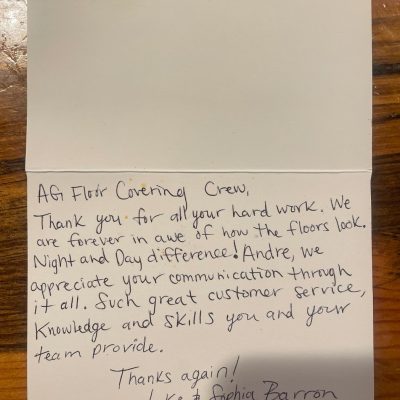 AG Floor Covering Crew,
Thank you for all your hard work. We
are forever in awe of how the floors look.
Night and Day difference! Andre, we
appreciate your communication through
it all. Such great customer service,
Knowledge and skills you and your
team provide.
Thanks again!
& Sophia Barron